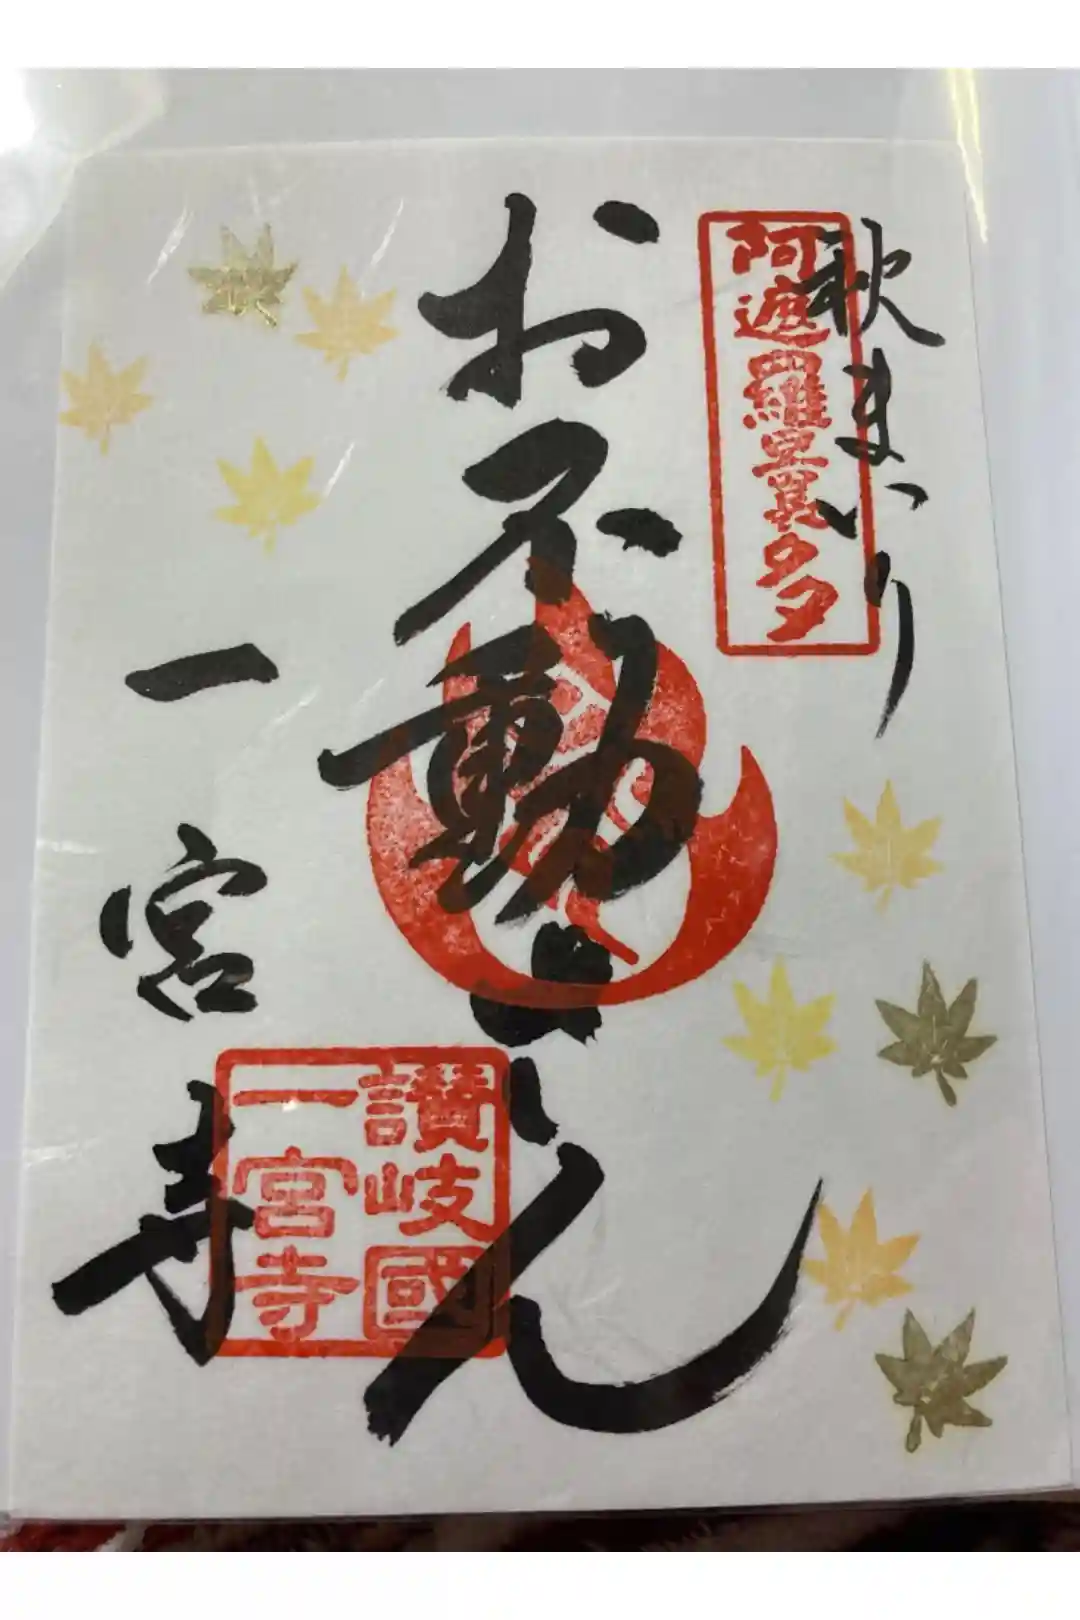 秋まいり
阿遮羅曩多
お不動さん
一宮寺
讃岐國
一宮寺